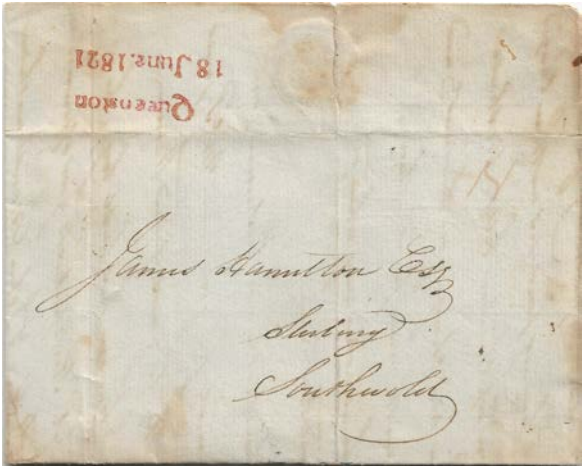 Queenston
18 June. 1821
James Hamilton Esq
Sterling
Southwold